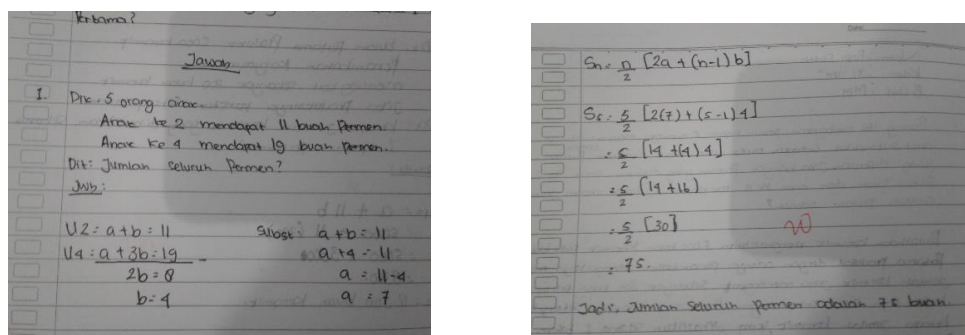 Perbama?
Jawab
1. Dik: 5 orang anak.
Anak ke 2 mendapat 11 buah Permen.
Anak ke 4 mendapat 19 buah Permen.
Dit: Jumlah seluruh Permen?
Jwb:
U2 = a+b = 11
U4 = a+3b = 19 -
2b = 8
b = 4
Subst: a+b = 11
a+4 = 11
a = 11-4
a = 7
Sn = n/2 [2a + (n-1) b]
S5 = 5/2 [2(7) + (5-1) 4]
= 5/2 [14 + (4) 4]
= 5/2 (14 + 16)
= 5/2 [30]
= 75.
Jadi, Jumlah seluruh Permen adalah 75 buah.